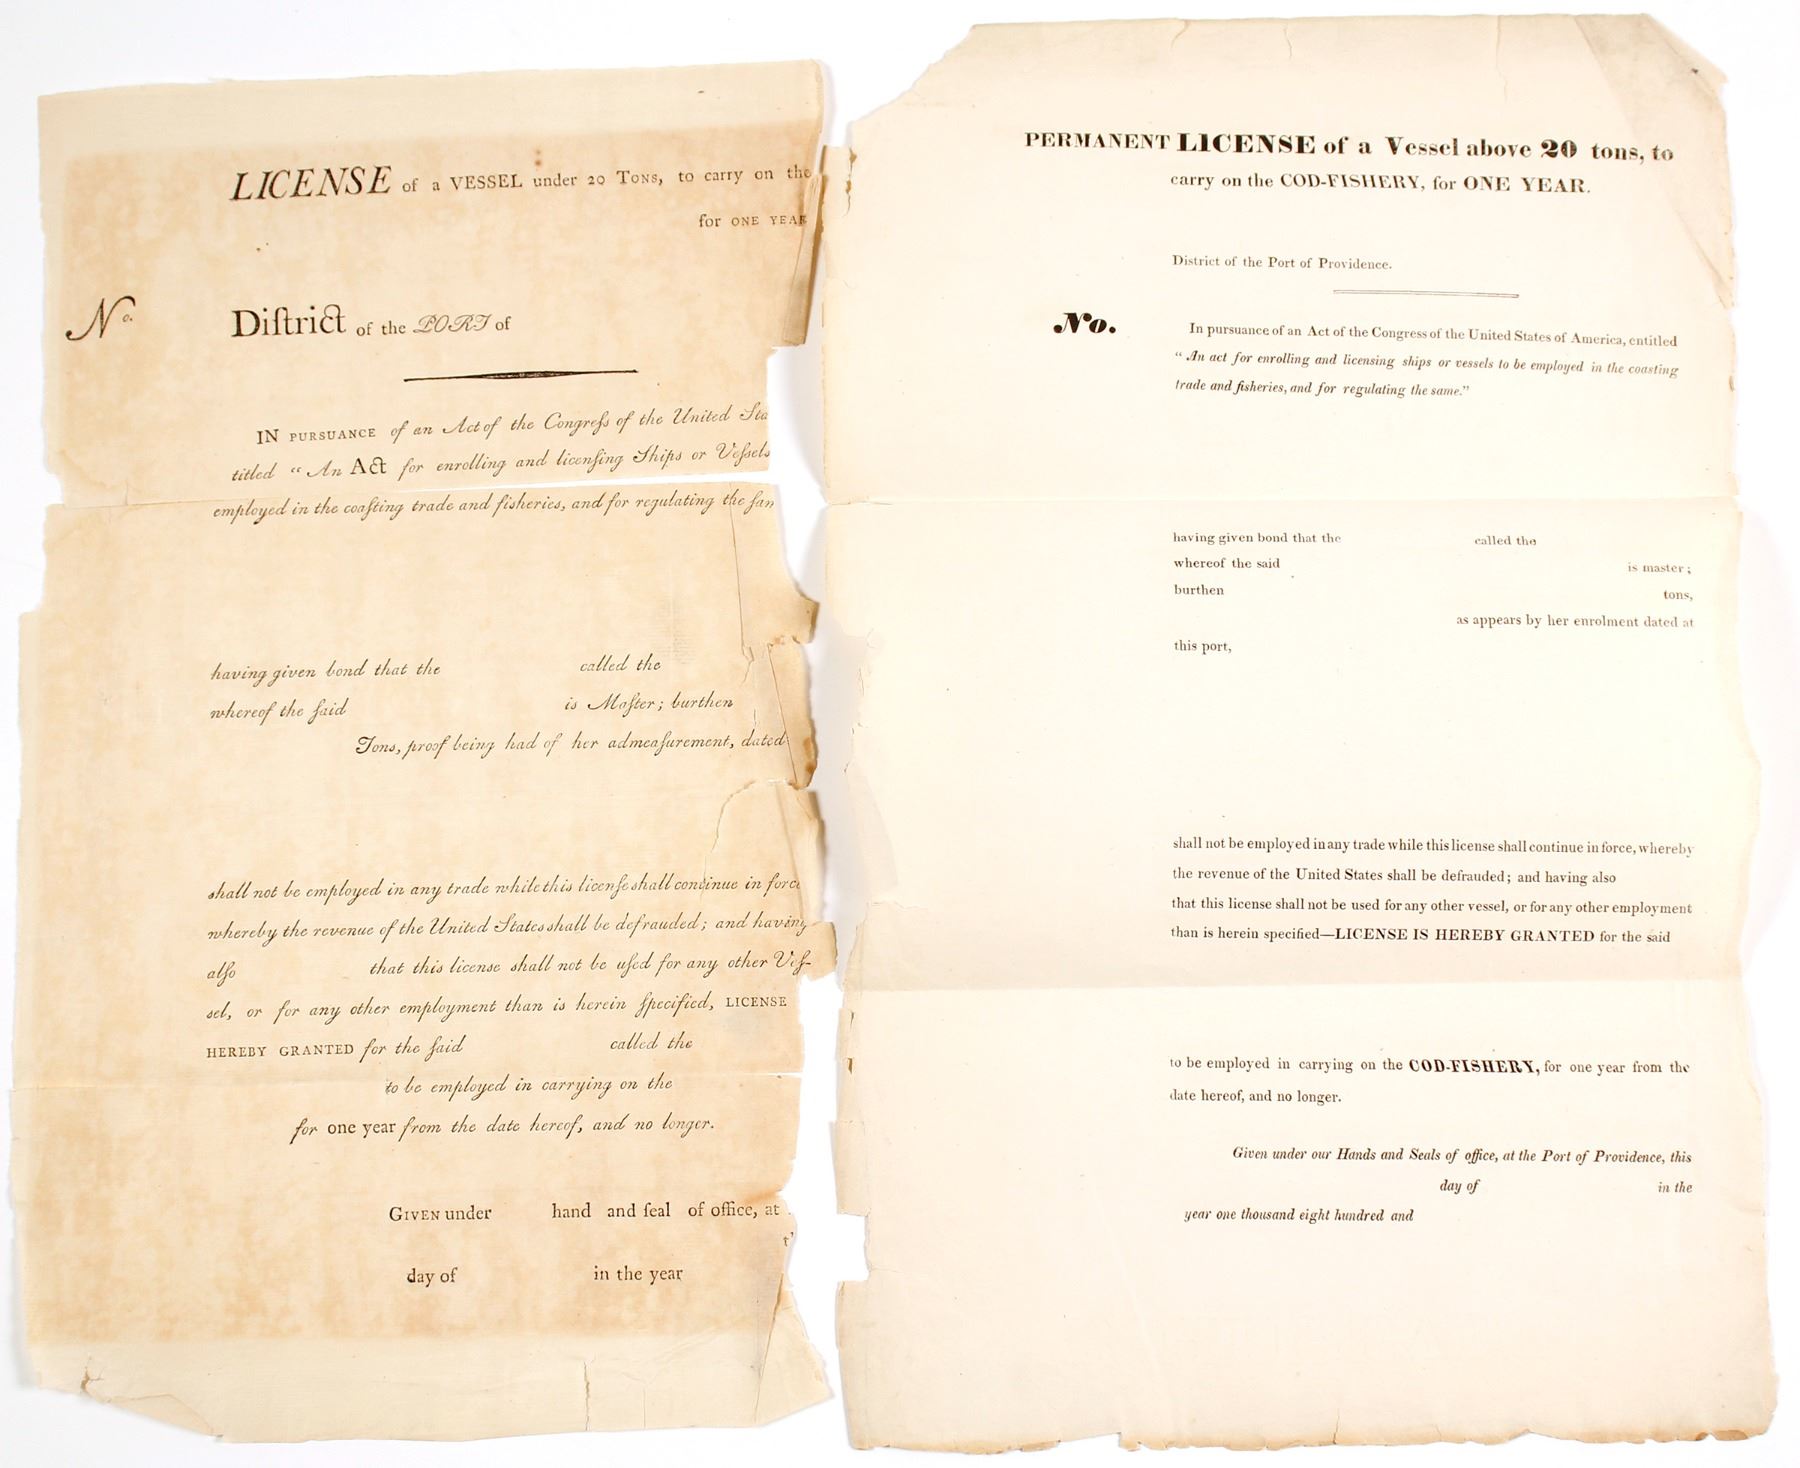 LICENSE of a VESSEL under 20 TONS, to carry on the
for ONE YEAR
No.
Diſtrict of the PORT of
IN PURSUANCE of an Act of the Congreſs of the United Sta
titled "An Act for enrolling and licenſing Ships or Veſsels
employed in the coaſting trade and fiſheries, and for regulating the ſam
having given bond that the called the
whereof the ſaid is Maſter; burthen
Tons, proof being had of her admeaſurement, dated
shall not be employed in any trade while this licenſe shall continue in force
whereby the revenue of the United States shall be defrauded; and having
alſo that this license shall not be uſed for any other Veſ-
sel, or for any other employment than is herein ſpecified, LICENSE
HEREBY GRANTED for the ſaid called the
to be employed in carrying on the
for one year from the date hereof, and no longer.
GIVEN under hand and ſeal of office, at
day of in the year
PERMANENT LICENSE of a Vessel above 20 tons, to
carry on the COD-FISHERY, for ONE YEAR.
District of the Port of Providence.
No.
In pursuance of an Act of the Congress of the United States of America, entitled
"An act for enrolling and licensing ships or vessels to be employed in the coasting
trade and fisheries, and for regulating the same."
having given bond that the called the
whereof the said is master;
burthen tons,
as appears by her enrolment dated at
this port,
shall not be employed in any trade while this license shall continue in force, whereby
the revenue of the United States shall be defrauded; and having also
that this license shall not be used for any other vessel, or for any other employment
than is herein specified—LICENSE IS HEREBY GRANTED for the said
to be employed in carrying on the COD-FISHERY, for one year from the
date hereof, and no longer.
Given under our Hands and Seals of office, at the Port of Providence, this
day of in the
year one thousand eight hundred and